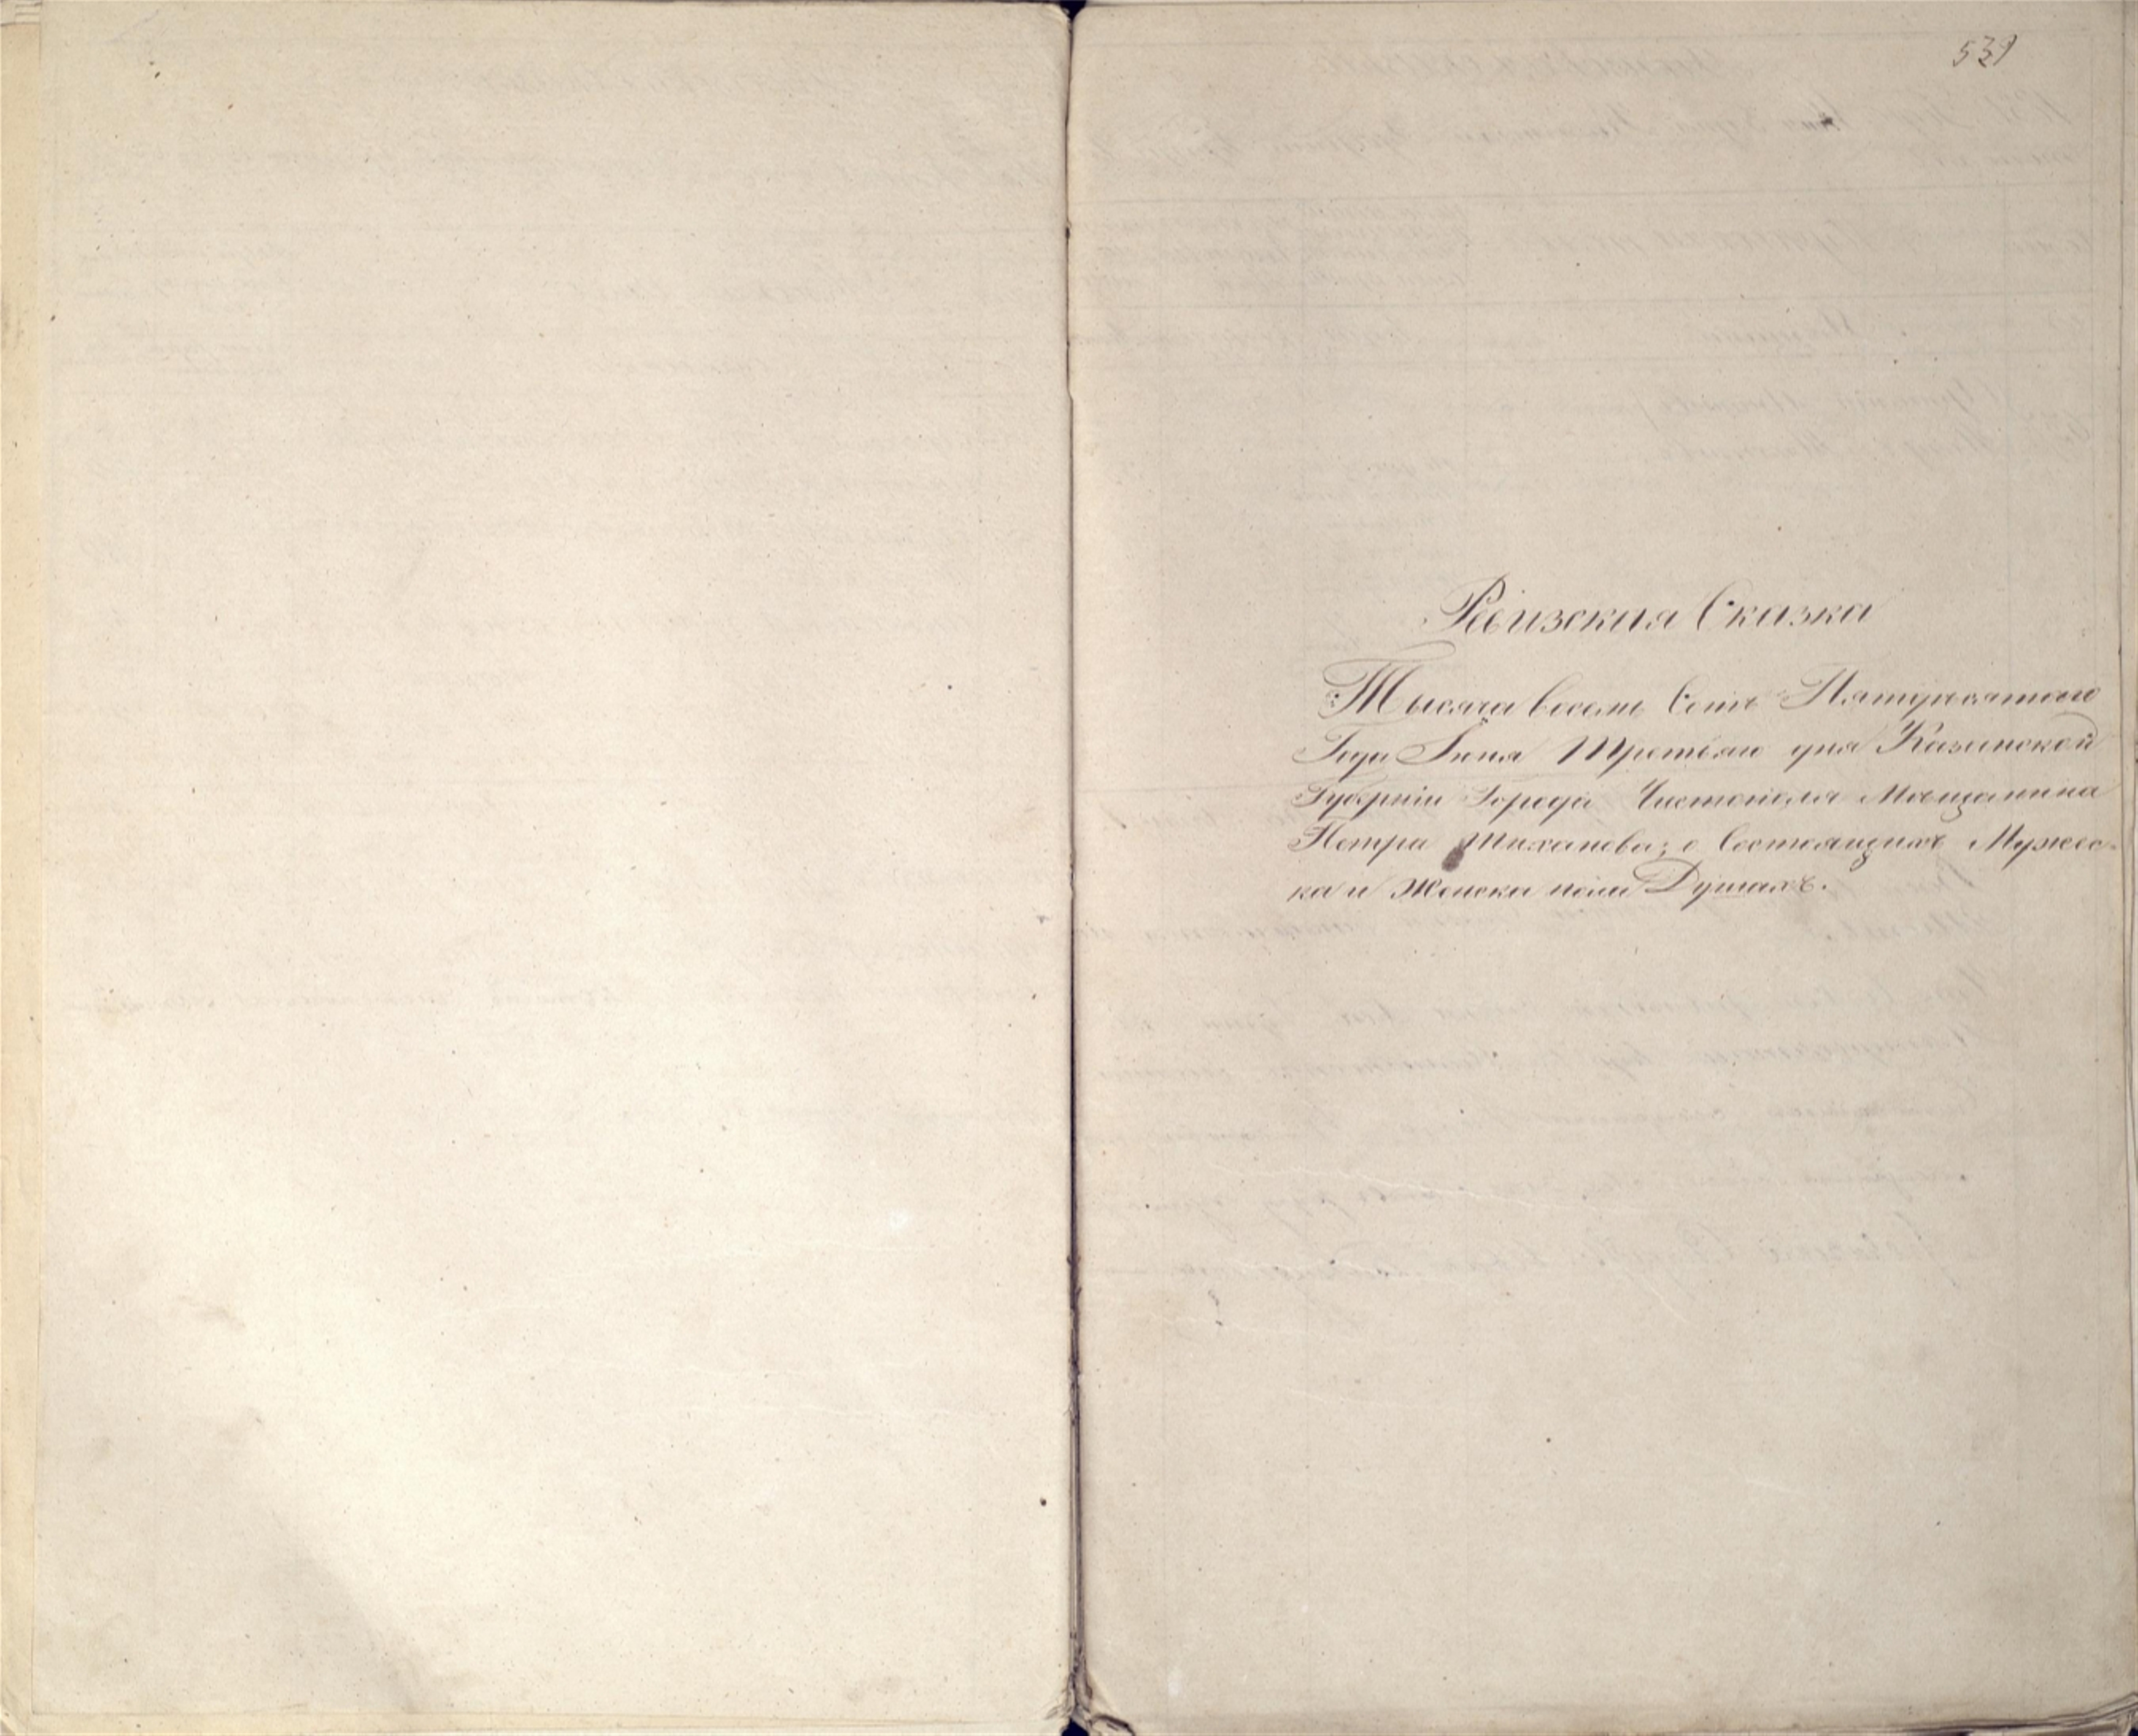 539
Ревизская Сказка
Тысяча восемь Сотъ Пятидесятого
Года Июня Третьяго дня Казанской
Губерніи Города Чистополя Мѣщанина
Петра Тиханова; о Состоящихъ Мужес-
ка и Женска пола Душахъ.